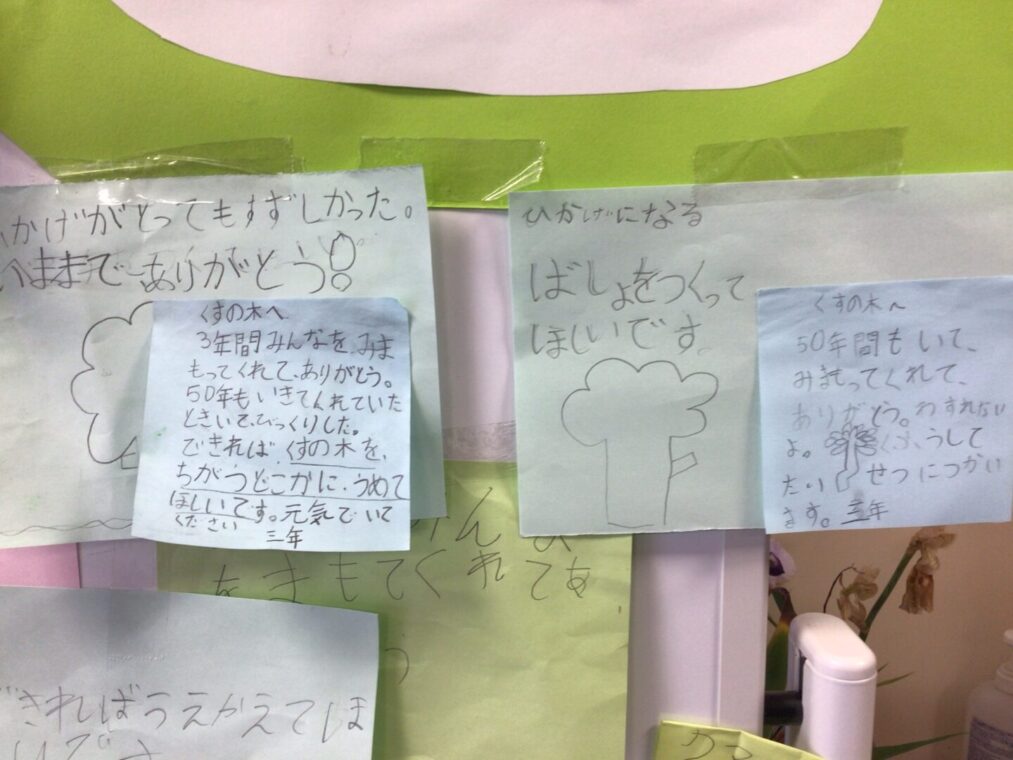 かげがとってもすずしかった。
いままでありがとう!
くすの木へ
3年間みんなを、みま
もってくれて、ありがとう。
50年もいきてくれていた
ときいて、びっくりした。
できれば、くすの木を、
ちがうどこかに、うめて
ほしいです。元気でいて
ください
三年
ひかげになる
ばしょをつくって
ほしいです
くすの木へ
50年間もいて、
みまもってくれて、
ありがとう。わすれない
よ。くふうして
たいせつにつかい
ます。三年
をまもてくれてあ
きればうえかえてほ